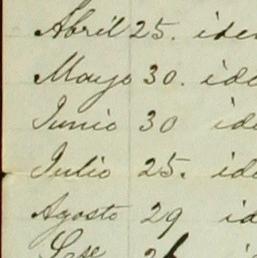 Abril 25. iden
Mayo 30. ide
Junio 30 ide
Julio 25. ide
Agosto 29 id